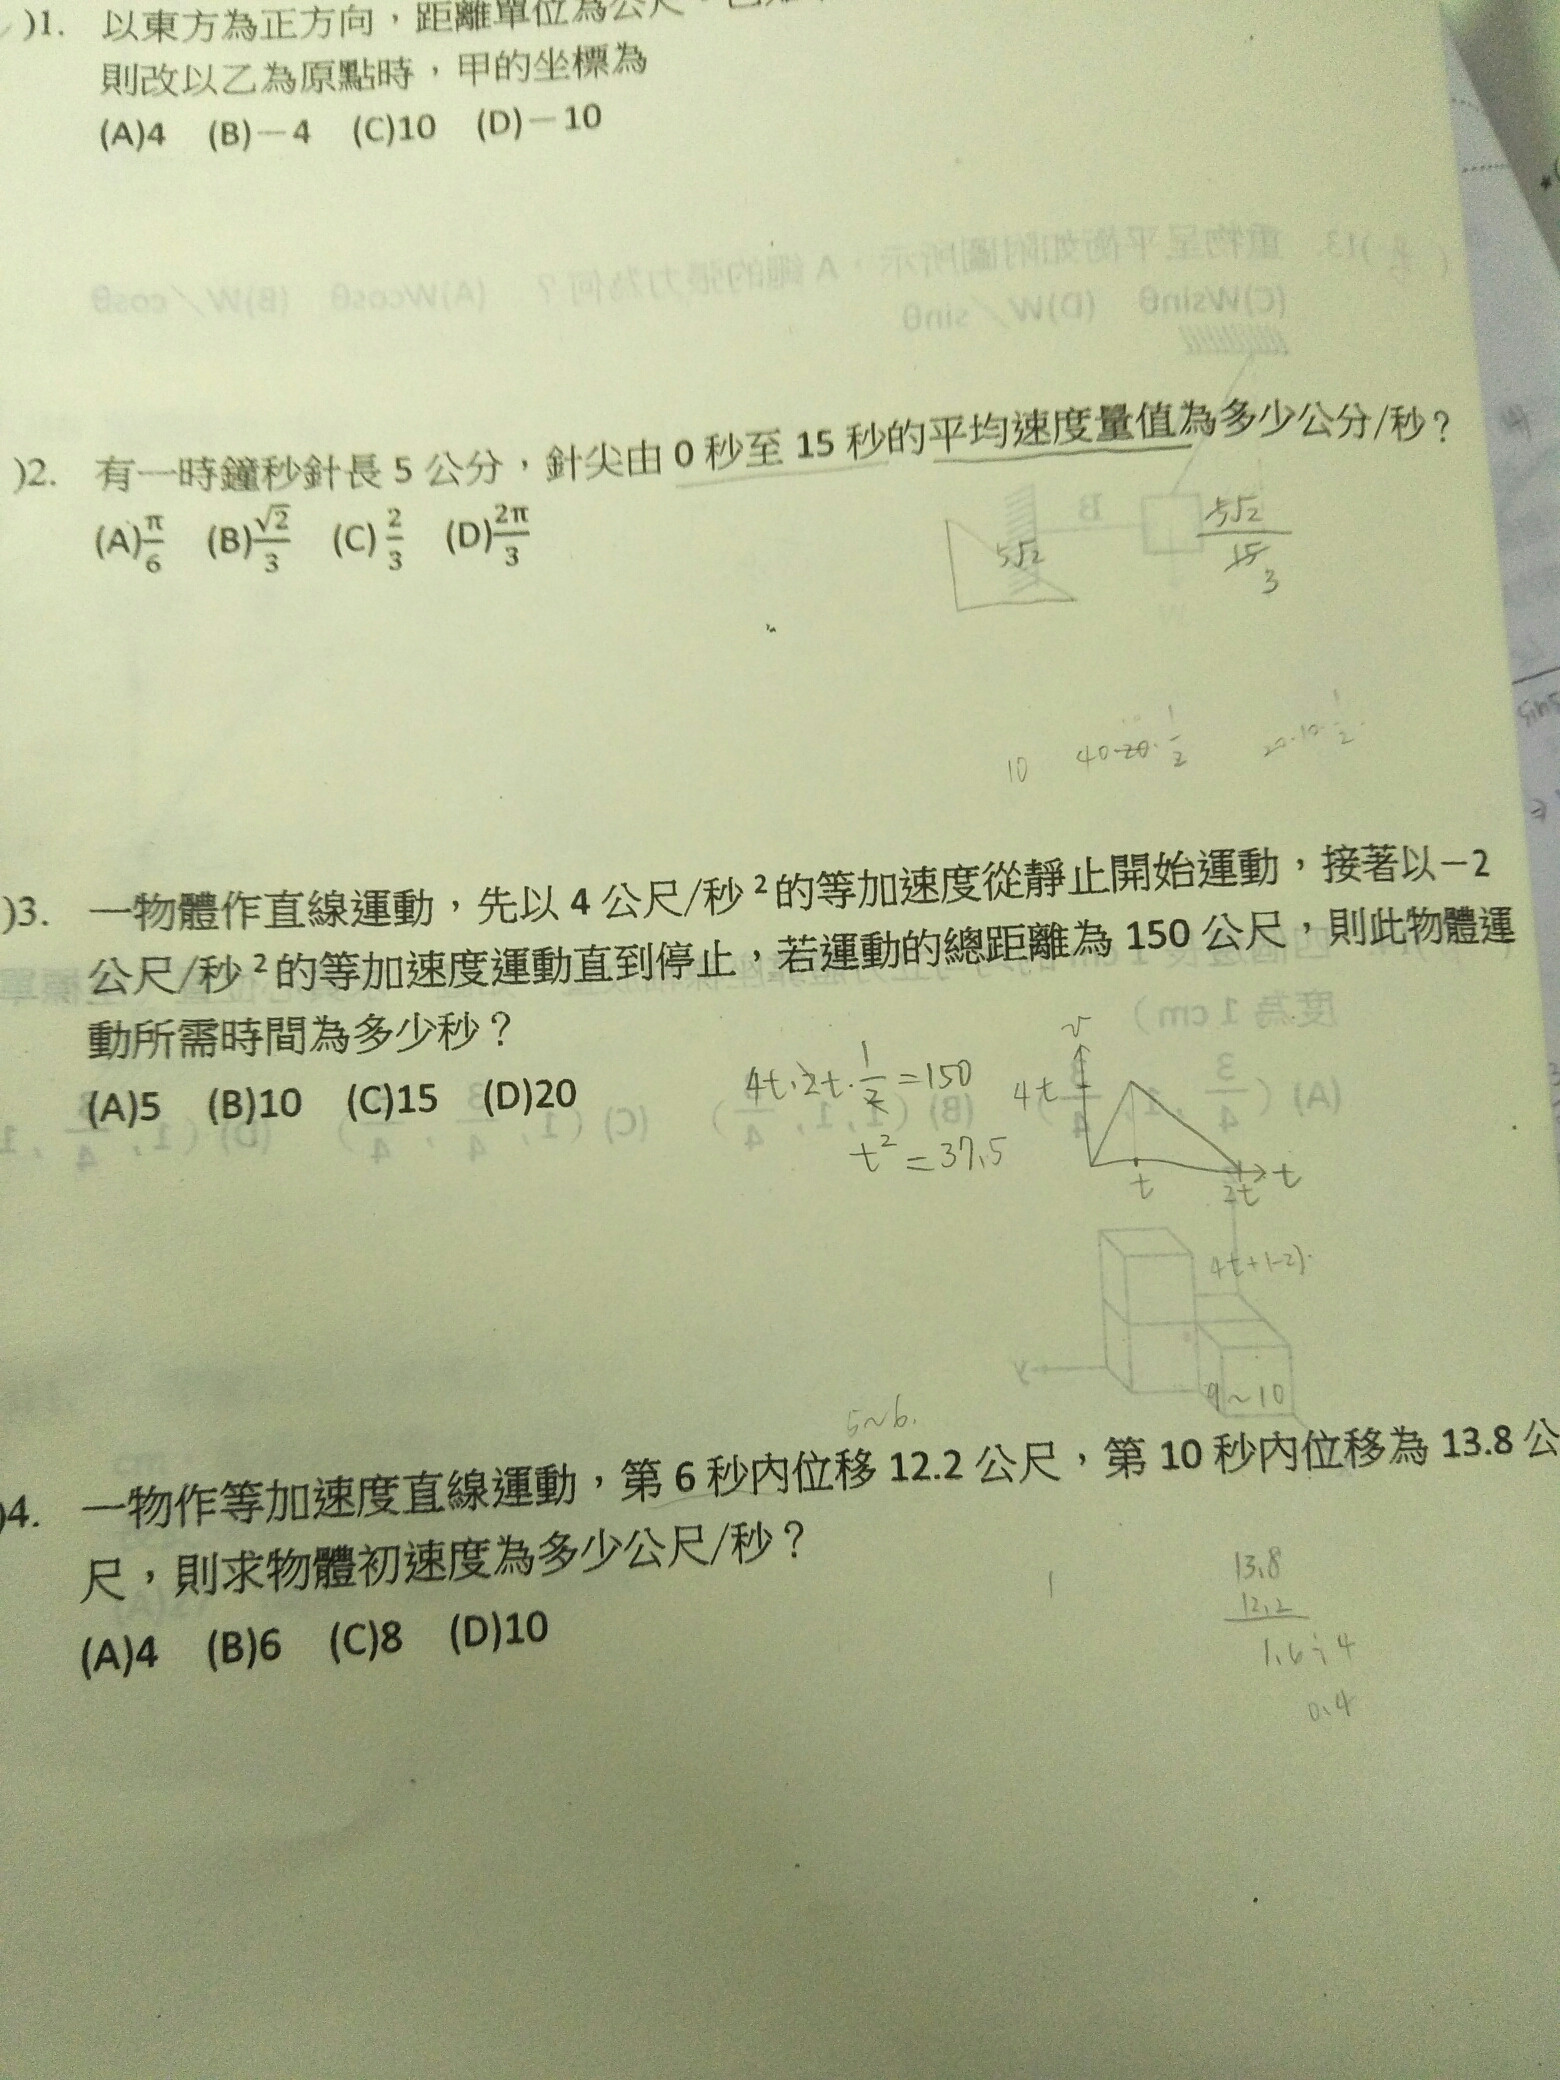 )1. 以東方為正方向，距離單位為公尺，
則改以乙為原點時，甲的坐標為
(A)4 (B)－4 (C)10 (D)－10
)13. 重物呈平衡如附圖所示，A 繩的張力為何？ (A)Wcosθ (B)W／cosθ
(C)Wsinθ (D)W／sinθ
)2. 有一時鐘秒針長 5 公分，針尖由 0 秒至 15 秒的平均速度量值為多少公分/秒？
(A)π/6 (B)√2/3 (C)2/3 (D)2π/3
B
W
5√2
5√2
15
3
10 40-20·1/2 20·10·1/2
)3. 一物體作直線運動，先以 4 公尺/秒²的等加速度從靜止開始運動，接著以－2
公尺/秒²的等加速度運動直到停止，若運動的總距離為 150 公尺，則此物體運
動所需時間為多少秒？
度為 1 cm )
(A)5 (B)10 (C)15 (D)20
4t·2t·1/2=150
t²=37.5
v
4t
t
2t
t
4t+(-2)·
y
5~6.
9~10
)4. 一物作等加速度直線運動，第 6 秒內位移 12.2 公尺，第 10 秒內位移為 13.8 公
尺，則求物體初速度為多少公尺/秒？
(A)4 (B)6 (C)8 (D)10
13.8
12.2
1.6÷4
0.4